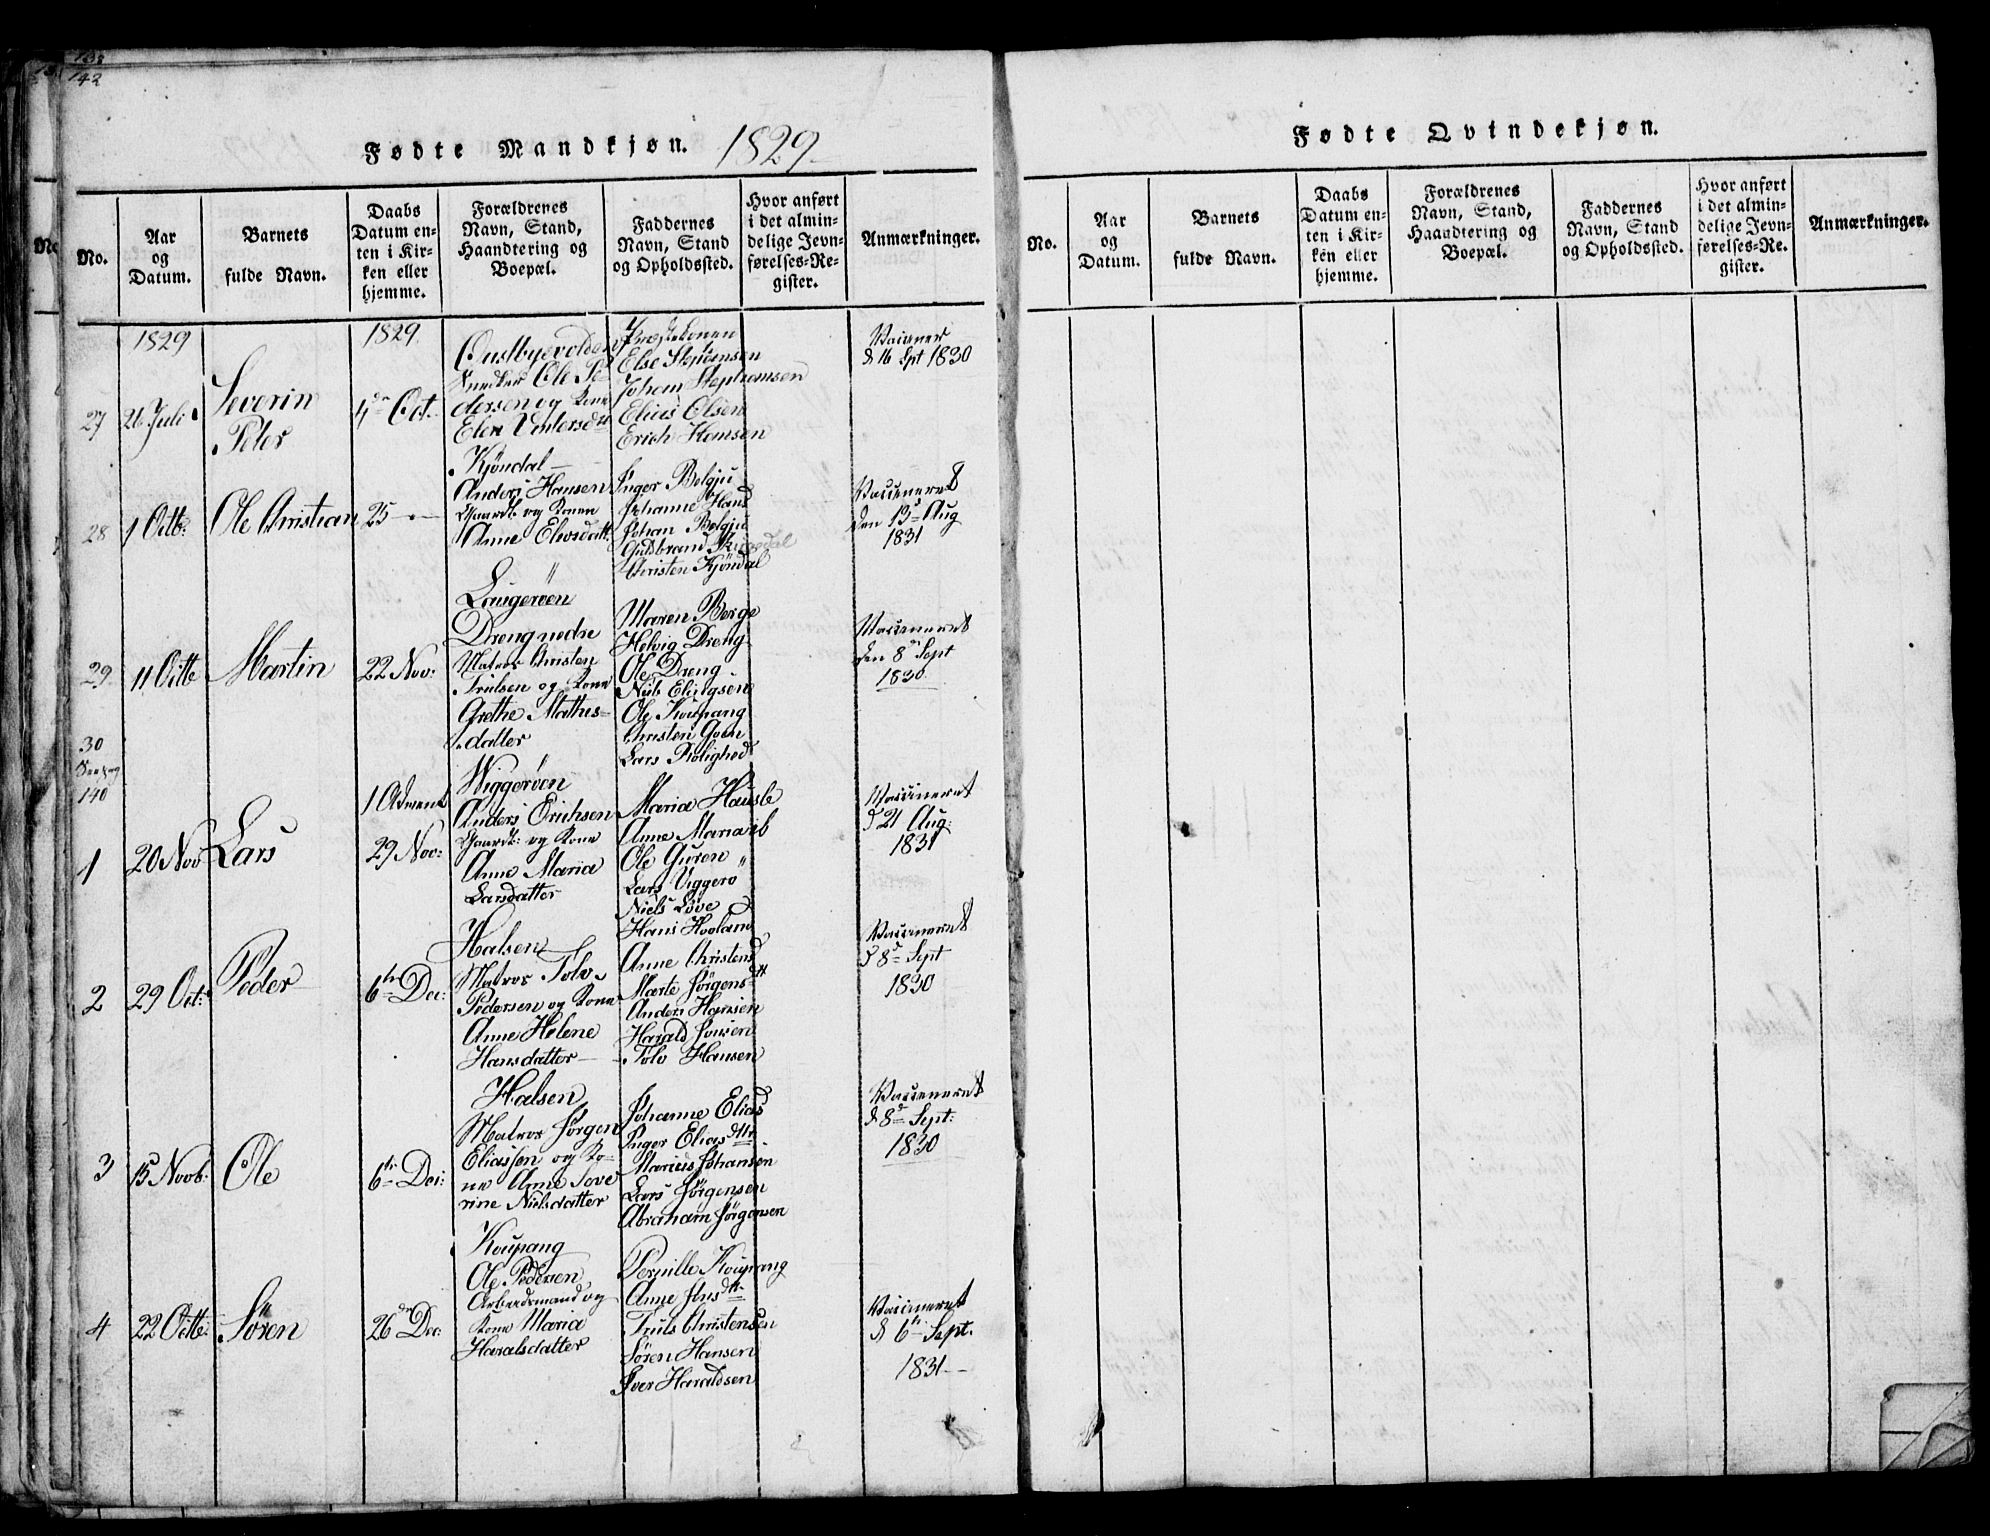 142
Fødte Mandkjøn. 1829
No.
Aar
og
Datum.
Barnets
fulde Navn.
Daabs
Datum en-
ten i Kir-
ken eller
hjemme.
Forældrenes
Navn, Stand,
Haandtering og
Boepæl.
Faddernes
Navn, Stand
og Opholdssted.
Hvor anført
i det almin-
delige Jevn-
førelses-Re-
gister.
Anmærkninger.
27
1829
26 Juli
Severin
Peder
1829
4de Oct.
Ole Pe-
dersen og Kone
Else Stephensen
Johan Stephansen
Elias Olsen
Erich Hansen
d 16 Spt 1830
28
1 Octb:
Ole Christian
25
Kjöndal
Anders Hansen
Gaardb: og Konen
Anne Elevsdatt.
Inger Belgju
Johanne Hans
Johan Belgju
Guldbrand
Christen Kjöndal
Vaccineret
den 13d Aug
1831
29
11 Octb
Martin
22 Nov:
Laugeröen
Dreng nedre
Matros Christen
Trulsen og Kone
Grethe Mathis-
datter
Maren Berge
Helvig Dreng
Ole Dreng
Nils Elingsen
Ole Koupang
Christen Goen
Lars Rolighed
Vaccineret
den 8d Sept
1830
30
140
1
20 Nov
Lars
1 Advent
29 Nov:
Wiggeröen
Anders Erichsen
Gaardb: og Kone
Anne Maria
Larsdatter
Maria Hausle
Anne Maria ib
Ole Guren
Lars Viggerö
Niels Löve
Vaccineret
d 21 Aug:
1831
2
29 Oct:
Peder
6te Dec:
Halsen
Matros Tolv
Pedersen og Kone
Anne Helene
Hansdatter
Hans Hovland
Anne Christensd
Marte Jörgensdtt
Anders Hansen
Harald Jonsen
Tolv Hansen
Vaccineret
d 8d Sept
1830
3
15 Novb:
Ole
6te Dec:
Halsen
Matros Jörgen
Eliassen og Ko-
ne Anne Seve
rine Nielsdatter
Johanne Elias
Inger Eliasdttr
Marius Johansen
Lars Jörgensen
Abraham Jörgensen
Vaccineret
d 8d Sept:
1830
4
22 Octb:
Sören
26de Dec
Koupang
Ole Pedersen
Arbeidsmand og
Kone Maria
Haralsdatter
Pernille Koupang
Anne Jensdtt
Truls Christensen
Sören Hansen
Iver Haraldsen
Vaccineret
d 6te Sept.
1831
Fødte Qvindekjøn.
No.
Aar
og
Datum.
Barnets
fulde Navn.
Daabs
Datum en-
ten i Kir-
ken eller
hjemme.
Forældrenes
Navn, Stand,
Haandtering og
Boepæl.
Faddernes
Navn, Stand
og Opholdssted.
Hvor anført
i det almin-
delige Jevn-
førelses-Re-
gister.
Anmærkninger.